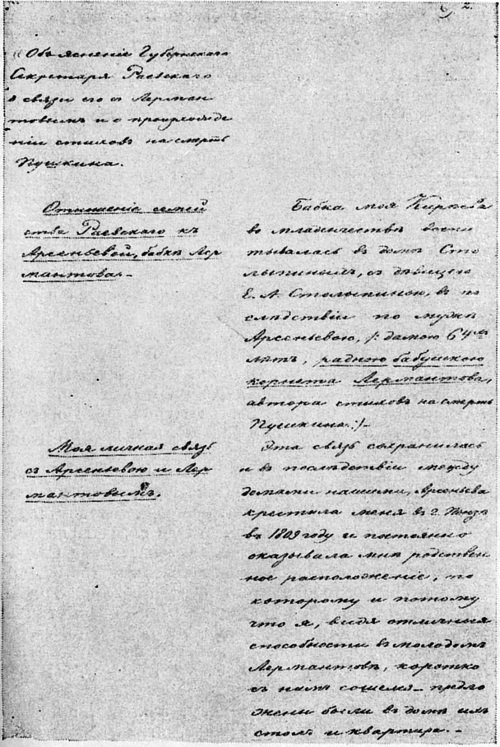 2.
"Объясненіе Губернскаго
Секретаря Раевскаго
о связи его съ Лерман
товымъ и о происхожде
ніи стиховъ на смерть
Пушкина.
Отношеніе семей
ства Раевскаго къ
Арсеньевой, бабкѣ Лер
мантова.
Бабка моя Киреева
во младенчествѣ воспи
тывалась въ домѣ Сто
лыпиныхъ, съ дѣвицею
Е. А. Столыпиною, въ по
слѣдствіи по мужѣ
Арсеньевою, /: дамою 64хъ
лѣтъ, родною бабушкою
корнета Лермантова,
автора стиховъ на смерть
Пушкина :/.
Моя личная связь
съ Арсеньевою и Лер
мантовымъ.
Эта связь сохранилась
и въ послѣдствіи между
домами нашими, Арсеньева
крестила меня въ г. Пензѣ
въ 1809 году и постоянно
оказывала мнѣ родствен
ное расположеніе, по
которому и потому
что я, видя отличныя
способности въ молодомъ
Лермантовѣ, коротко
съ нимъ сошелся предло
жены были въ домѣ ихъ
столъ и квартира.